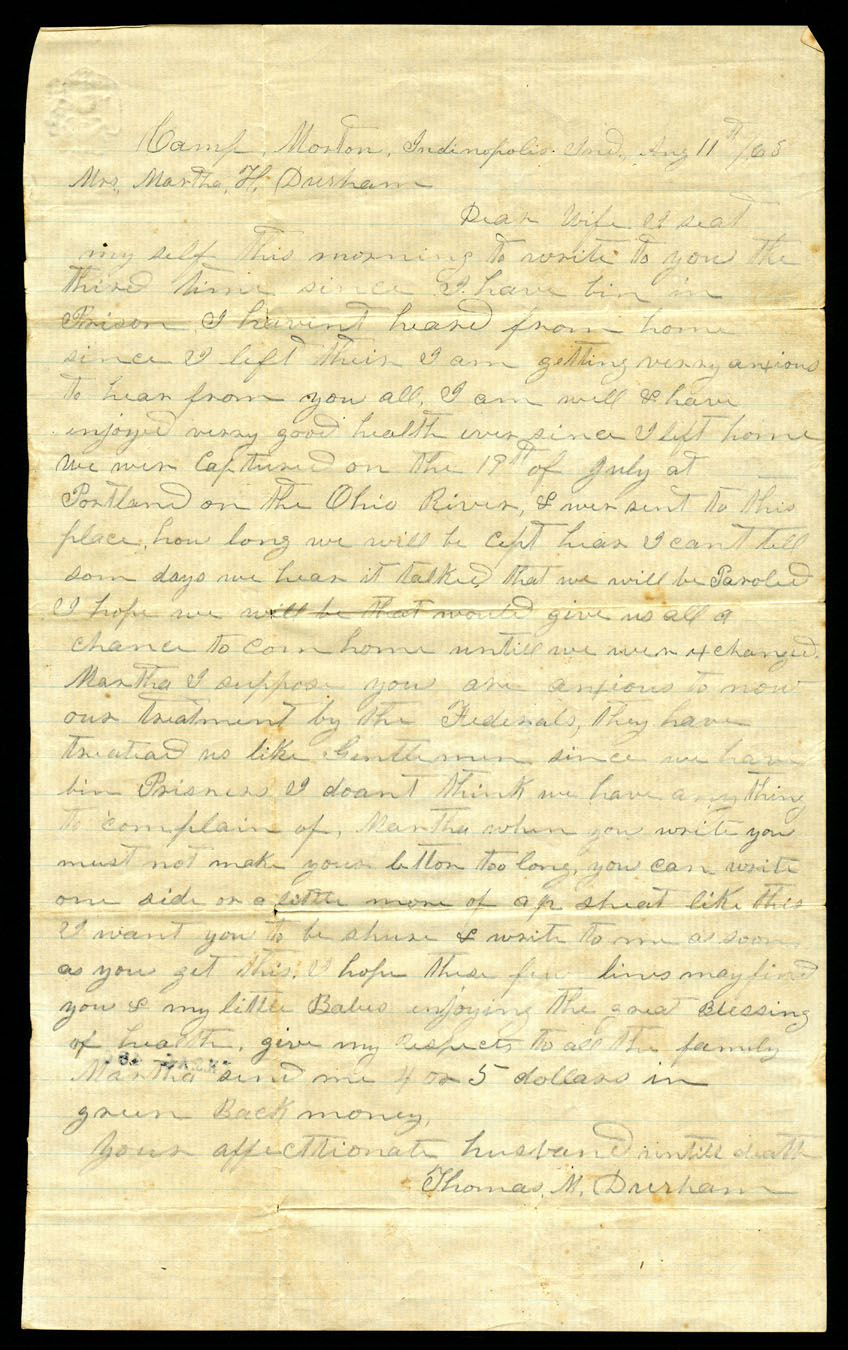 Camp, Morton, Indinopolis. Ind, Aug 11th/63
Mrs, Martha, H, Durham
Dear Wife I seat
my self this morning to write to you the
third time since I have bin in
Prison I havent heard from home
since I left their I am getting verry anxious
to hear from you all, I am well & have
injoyed verry good health ever since I left home
We wer Captured on the 19th of July at
Portland on the Ohio River, & wer sent to this
place, how long we will be cept hear I cant tell
som days we hear it talked that we will be Paroled
I hope we will be that would give us all a
chance to com home untill we wer exchanged.
Martha I suppose you are anxious to now
our treatment by the Federals, they have
treatead us like Gentlemen since we have
bin Prisners I doant think we have any thing
to complain of, Martha when you write you
must not make your letter too long, you can write
one side or a little more of a sheat like this
I want you to be shure & write to me as soon
as you get this. I hope these few lines may find
you & my little Babes injoying the great Blessing
of health, give my respects to all the family
Martha send me 4 or 5 dollars in
green Back money,
Your affecttionate husband untill death
Thomas, M, Durham